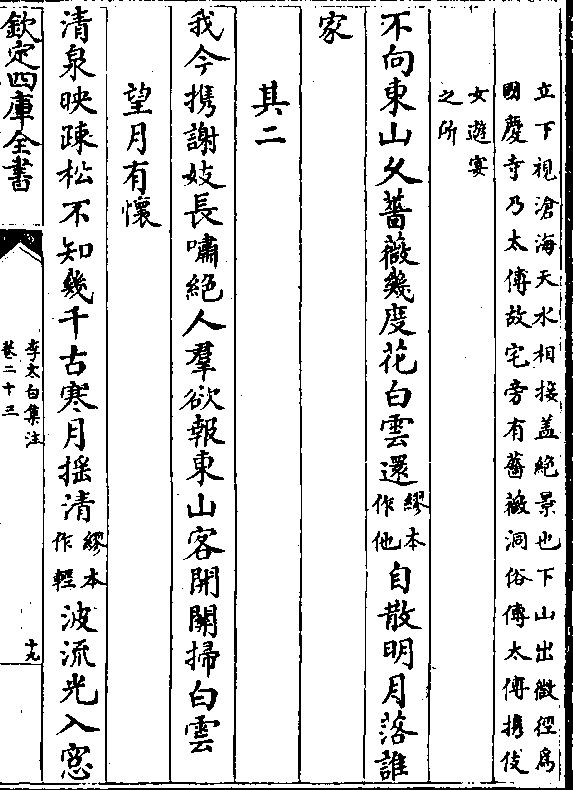 立下視滄海天水相接盖絶景也下山出微徑爲
國慶寺乃太傅故宅旁有薔薇洞俗傳太傅携伎
女遊宴
之所
不向東山久薔薇幾度花白雲還繆本作他自散明月落誰
家
其二
我今携謝妓長嘯絶人羣欲報東山客開關掃白雲
望月有懷
清泉映疎松不知幾千古寒月揺清繆本作輕波流光入窓
欽定四庫全書
李太白集注
卷二十三
十九